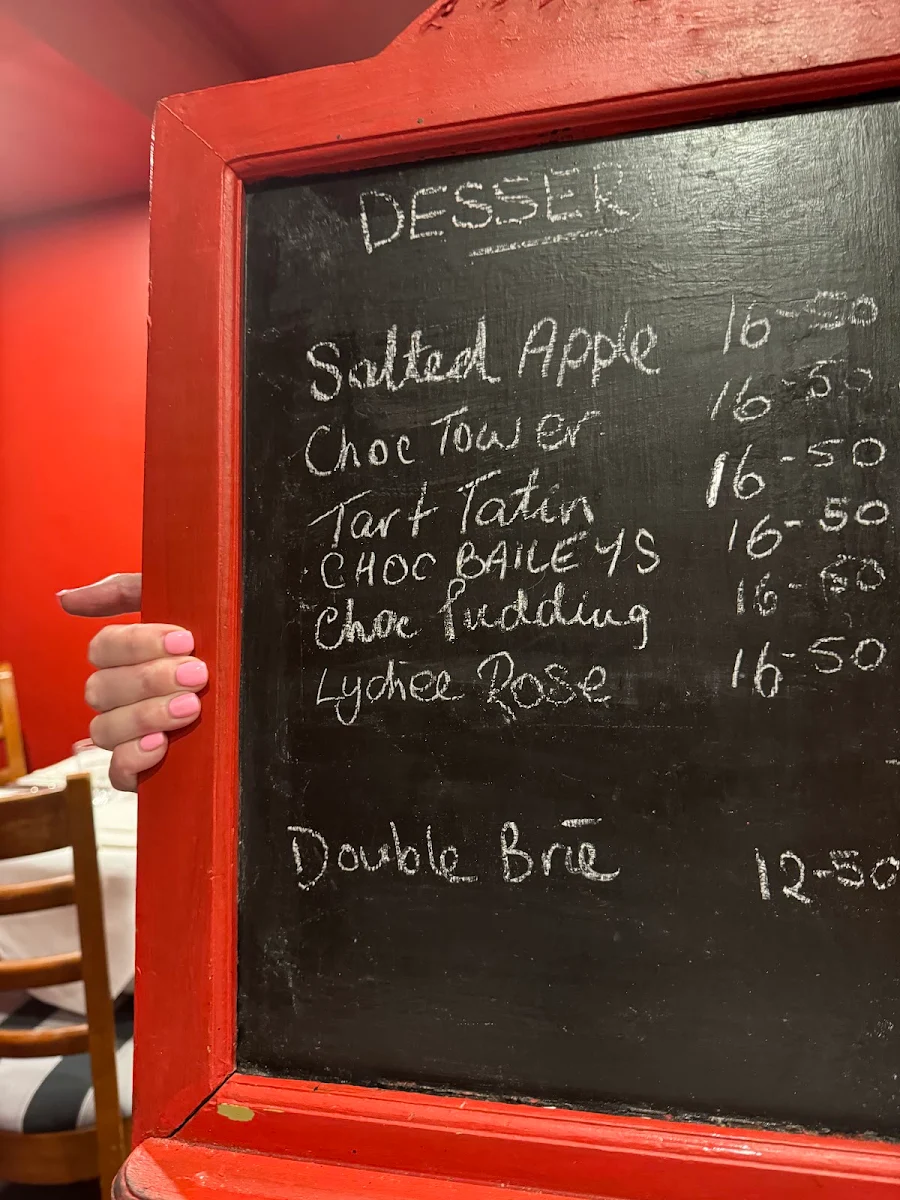 DESSER
Salted Apple 16-50
Choc Tower 16-50
Tart Tatin 16-50
CHOC BAILEYS 16-50
Choc Pudding 16-50
Lychee Rose 16-50
Double Brie 12-50